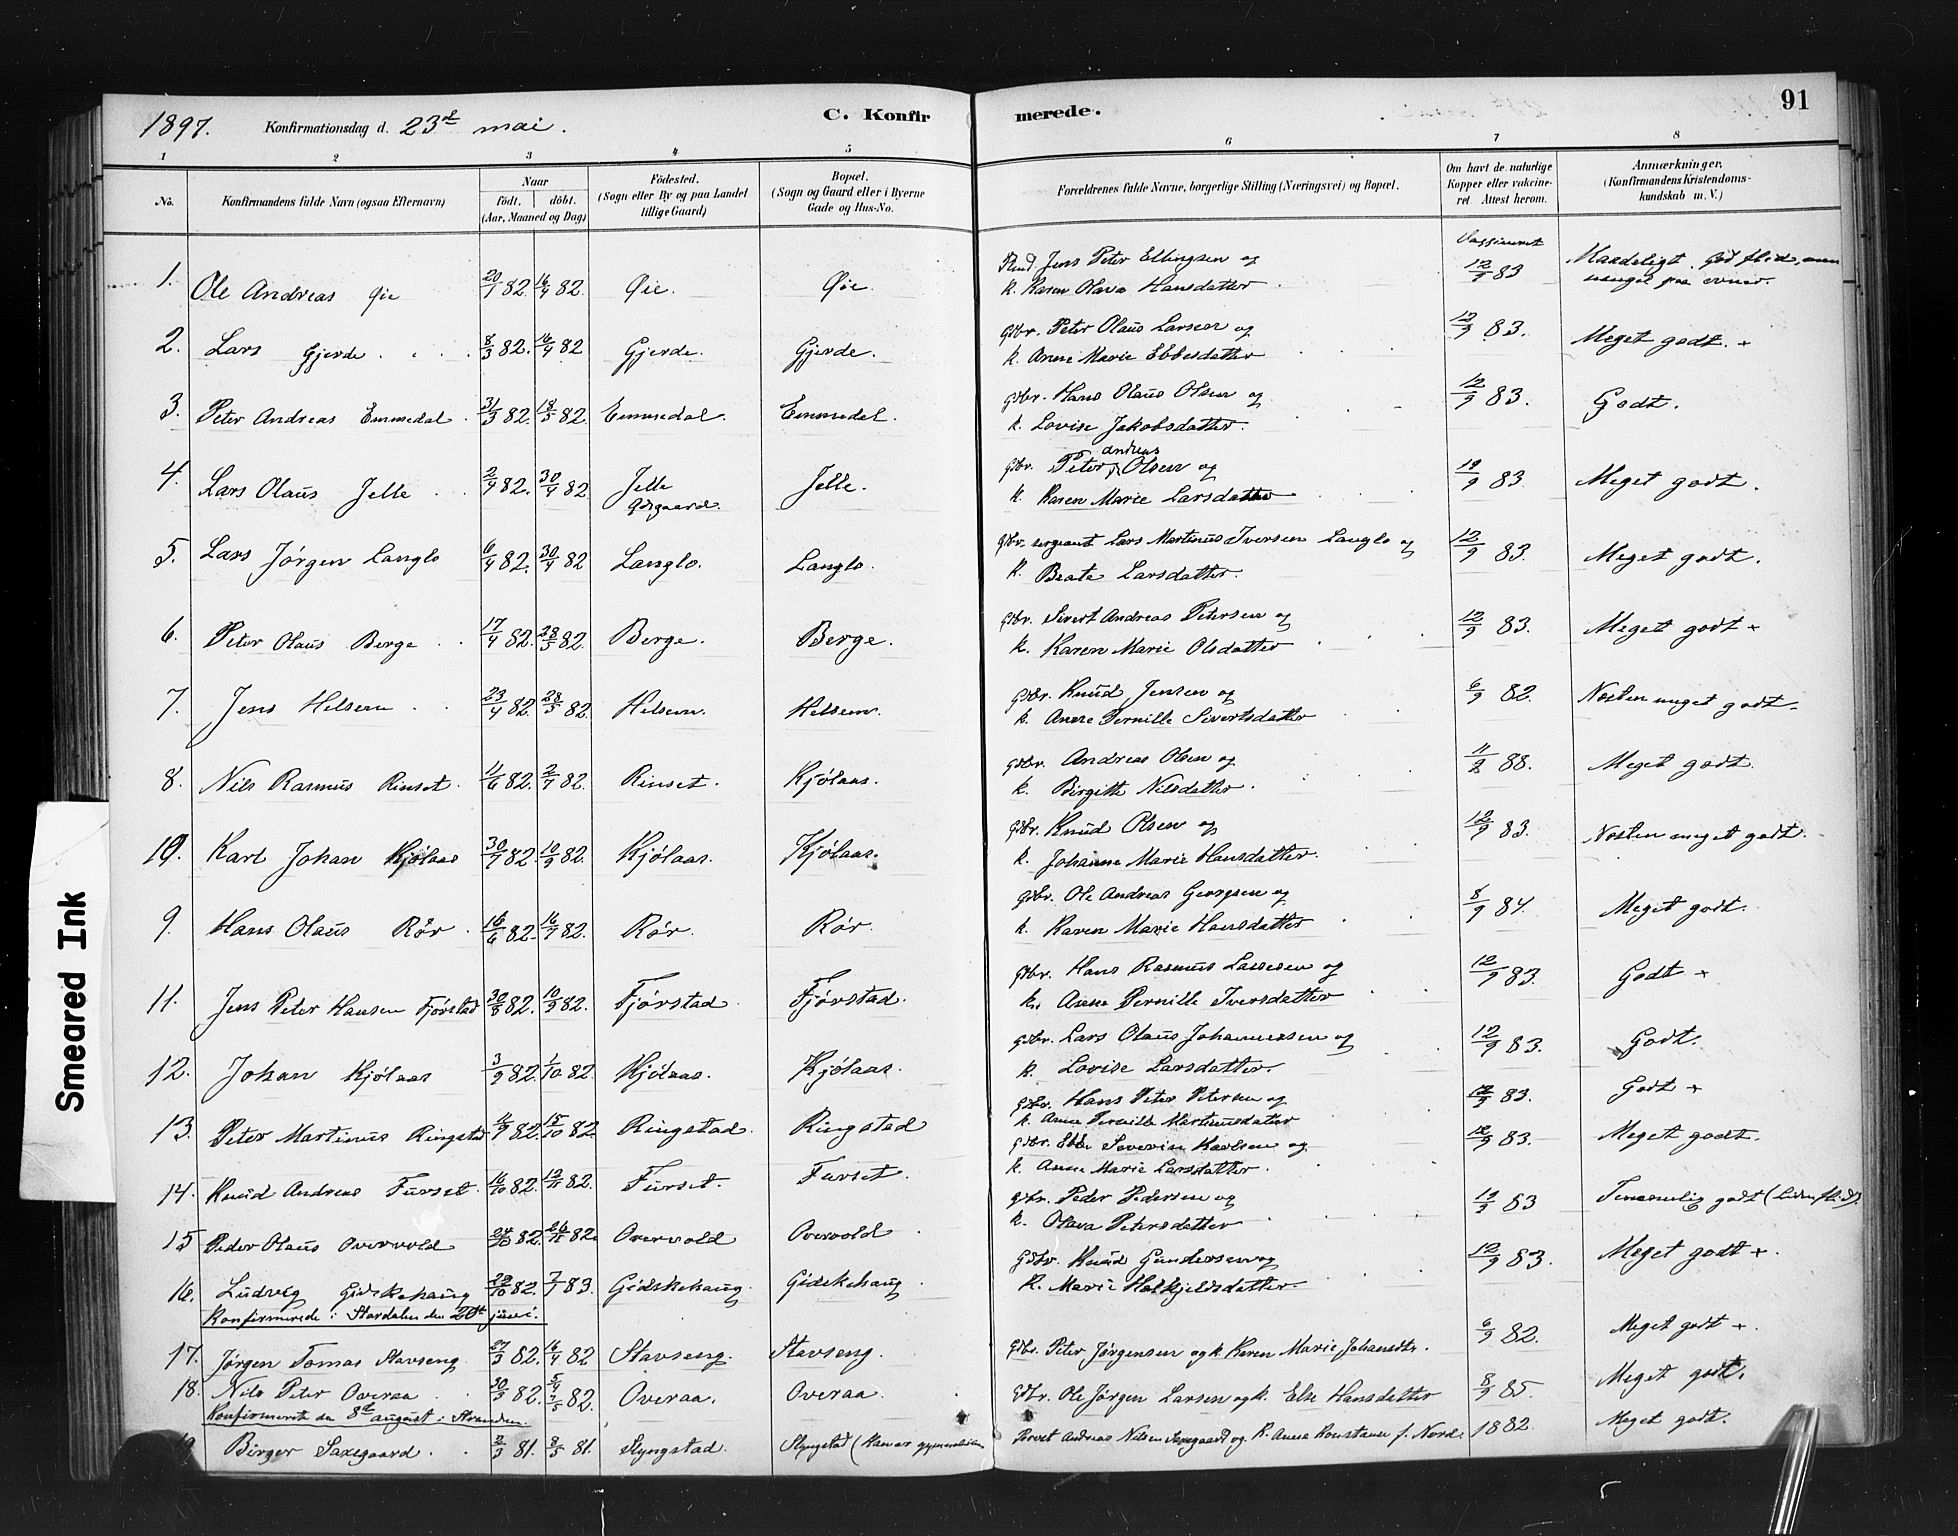 91
1897. Konfirmationsdag d. 23de mai. C. Konfirmerede.
1 2 3 4 5 6 7 8
No. Konfirmandens fulde Navn (ogsaa Efternavn) Naar født. døbt. (Aar, Maaned og Dag) Fødested. (Sogn eller By og paa Landet tillige Gaard) Bopæl. (Sogn og Gaard eller i Byerne Gade og Hus-No. Forældrenes fulde Navne, borgerlige Stilling (Næringsvei) og Bopæl. Om havt de naturlige Kopper eller vakcineret. Attest herom. Anmærkninger. (Konfirmandens Kristendomskundskab m. V.)
1. Ole Andreas Øie 20/1 82. 16/4 82. Øie. Øie. Jens Peter Ellingsen og Vaccineret 12/9 83 Maadeligt. God flid, men
k. Karen Olava Hansdatter mangel paa evner.
2. Lars Gjerde. 8/3 82. 16/4 82 Gjerde. Gjerde. Gdbr. Peter Olaus Larsen og 12/9 83. Meget godt. +
k. Anne Marie Ebbesdatter
3. Peter Andreas Emmedal. 31/3 82. 18/5 82. Emmedal. Emmedal. Gdbr. Hans Olaus Olsen og 12/9 83. Godt.
k. Lovise Jakobsdatter.
4. Lars Olaus Jelle 2/4 82. 30/4 82. Jelle Ødegaard. Jelle. Gdbr. Peter andreas Olsen og 12/9 83 Meget godt.
k. Karen Marie Larsdatter
5. Lars Jörgen Langlo 6/4 82. 30/4 82 Langlo. Langlo. Gdbr. sergeant Lars Martinus Iversen Langlo og 12/9 83. Meget godt.
k. Beate Larsdatter.
6. Peter Olaus Berge 17/4 82. 28/5 82. Berge. Berge. Gdbr. Sivert Andreas Petersen og 12/9 83. Meget godt +
k. Karen Marie Olsdatter
7. Jens Helsem 23/4 82. 28/5 82. Helsem. Helsem. Gdbr. Knud Jensen og 6/9 82. Næsten meget godt.
k. Anne Pernille Sivertsdatter
8. Nils Rasmus Rinset. 11/6 82. 2/7 82. Rinset. Kjölaas. Gdbr. Andreas Olsen og 11/2 88. Meget godt.
k. Birgitte Nilsdatter.
10. Karl Johan Kjölaas 30/7 82. 10/9 82. Kjölaas. Kjölaas. Gdbr. Knud Olsen og 12/9 83. Næsten meget godt.
k. Johanne Marie Hansdatter.
9. Hans Olaus Rör. 16/6 82. 16/7 82. Rör. Rör. Gdbr. Ole Andreas Georgsen og 8/9 84. Meget godt.
k. Karen Marie Hansdatter
11. Jens Peter Hansen Fjörstad 30/8 82. 10/9 82. Fjörstad. Fjörstad. Gdbr. Hans Rasmus Lassesen og 12/9 83. Godt +
k. Anne Pernille Iversdatter
12. Johan Kjölaas 3/9 82. 1/10 82. Kjölaas. Kjölaas. Gdbr. Lars Olaus Johannessen og 12/9 83. Godt.
k. Lovise Larsdatter.
13. Peter Martinus Ringstad 4/9 82. 15/10 82. Ringstad. Ringstad Gdbr. Hans Peter Petersen og 12/9 83. Godt +
k. Anne Pernille Martinusdatter
14. Knud Andreas Furset. 16/10 82. 12/11 82. Furset. Furset. Gdbr. Ebbe Severin Karlsen og 12/9 83. Meget godt.
k. Anne Marie Larsdatter.
15. Peder Olaus Overvold 24/10 82. 26/11 82. Overvold Overvold Gdbr. Peder Pedersen og 12/9 83 Temmelig godt (Liden flid).
k. Olava Petersdatter
16. Ludvig Gidskehaug 29/10 82. 7/1 83. Gidskehaug. Gidskehaug. Gdbr. Knud Gundersen og 12/9 83. Meget godt +.
k. Marie Halkjeldsdatter.
Konfirmerede i Stordalen den 20de juni.
17. Jörgen Tomas Stavseng. 27/3 82. 16/4 82 Stavseng. Stavseng. Gdbr. Peter Jörgensen og k. Karen Marie Johansdtr. 6/9 82. Meget godt +.
18. Nils Peter Overaa 30/3 82. 82. Overaa. Overaa. Gdbr. Ole Jörgen Larsen og k. Else Hansdatter 8/9 85. Meget godt.
Konfirmerede den 8de august i Stranden.
Birger Saxegaard. 2/3 81. 8/5 81. Slyngstad. Slyngstad Andreas Nilsen Saxegaard og k. Anna Konstance f. Nord. 1882. Meget godt.
Smeared Ink